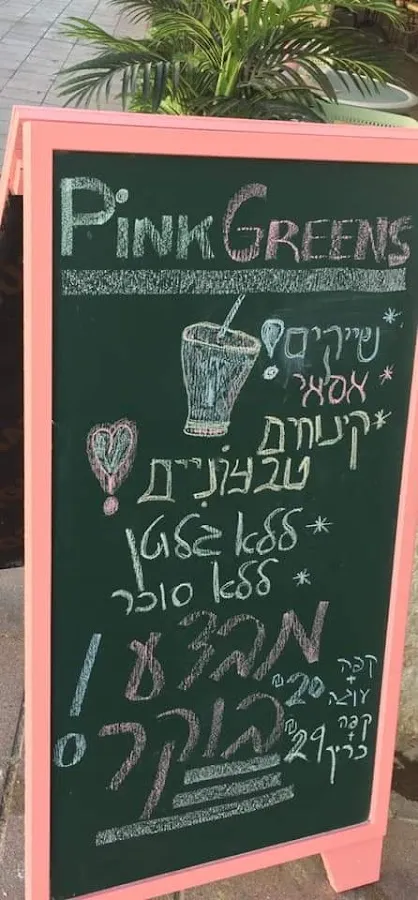 PINK GREENS
* שייקים!
* אסאי
* קינוחים
טבעוניים!
* ללא גלוטן
* ללא סוכר
מבצע
בוקר!
קפה
+
עוגה
20 ₪
קפה
+
כריך
29 ₪